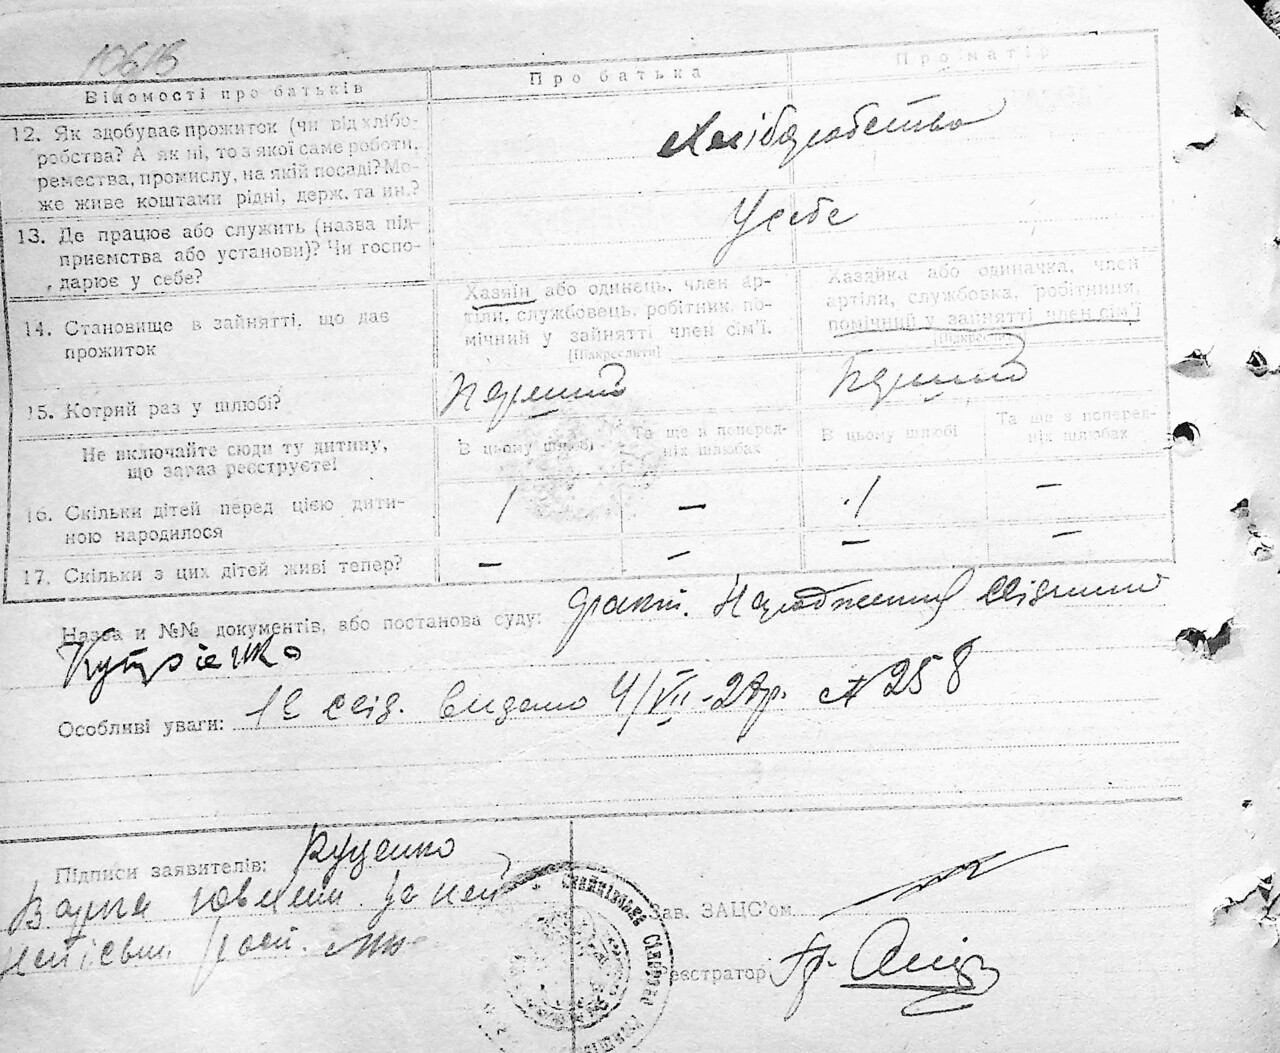 10616
Відомості про батьків
Про батька
Про матір
12. Як здобуває прожиток (чи від хлібо-
робства? А як ні, то з якої саме роботи,
ремества, промислу, на якій посаді? Мо-
же живе коштами рідні, держ. та ин.?
Хліборобство
13. Де працює або служить (назва під-
приємства або установи)? Чи госпо-
дарює у себе?
У себе
14. Становище в зайнятті, що дає
прожиток
Хазяїн або одинець, член ар-
тіли, службовець, робітник, по-
мічний у зайнятті член сім'ї.
[Підкреслити]
Хазяйка або одиначка, член
артіли, службовка, робітниця,
помічний у зайнятті член сім'ї
[Підкреслити]
15. Котрий раз у шлюбі?
Перший
Перший
Не включайте сюди ту дитину,
що зараз реєструєте!
В цьому шлюбі
Та ще з поперед-
ніх шлюбах
В цьому шлюбі
Та ще з поперед-
ніх шлюбах
16. Скільки дітей перед цією дити-
ною народилося
1 — 1 —
17. Скільки з цих дітей живі тепер?
— — — —
Назва и №№ документів, або постанова суду:
Особливі уваги: свід. видано 4/VII-28р. № 258
Підписи заявителів: Куценко
Зав. ЗАЦС'ом
Реєстратор